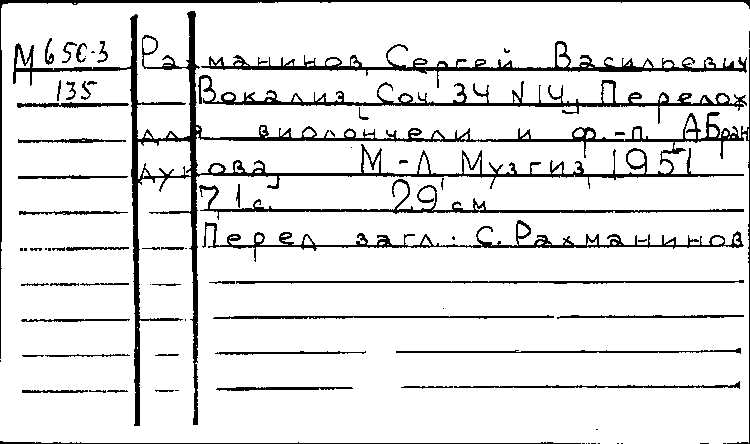 М 650-3
135
Рахманинов, Сергей Васильевич
Вокализ [Соч. 34 N 14], Перелож.
для виолончели и ф.-п. А Бран
дукова, М.-Л, Музгиз, 1951
7, 1 с. 29 см
Перед загл.: С. Рахманинов